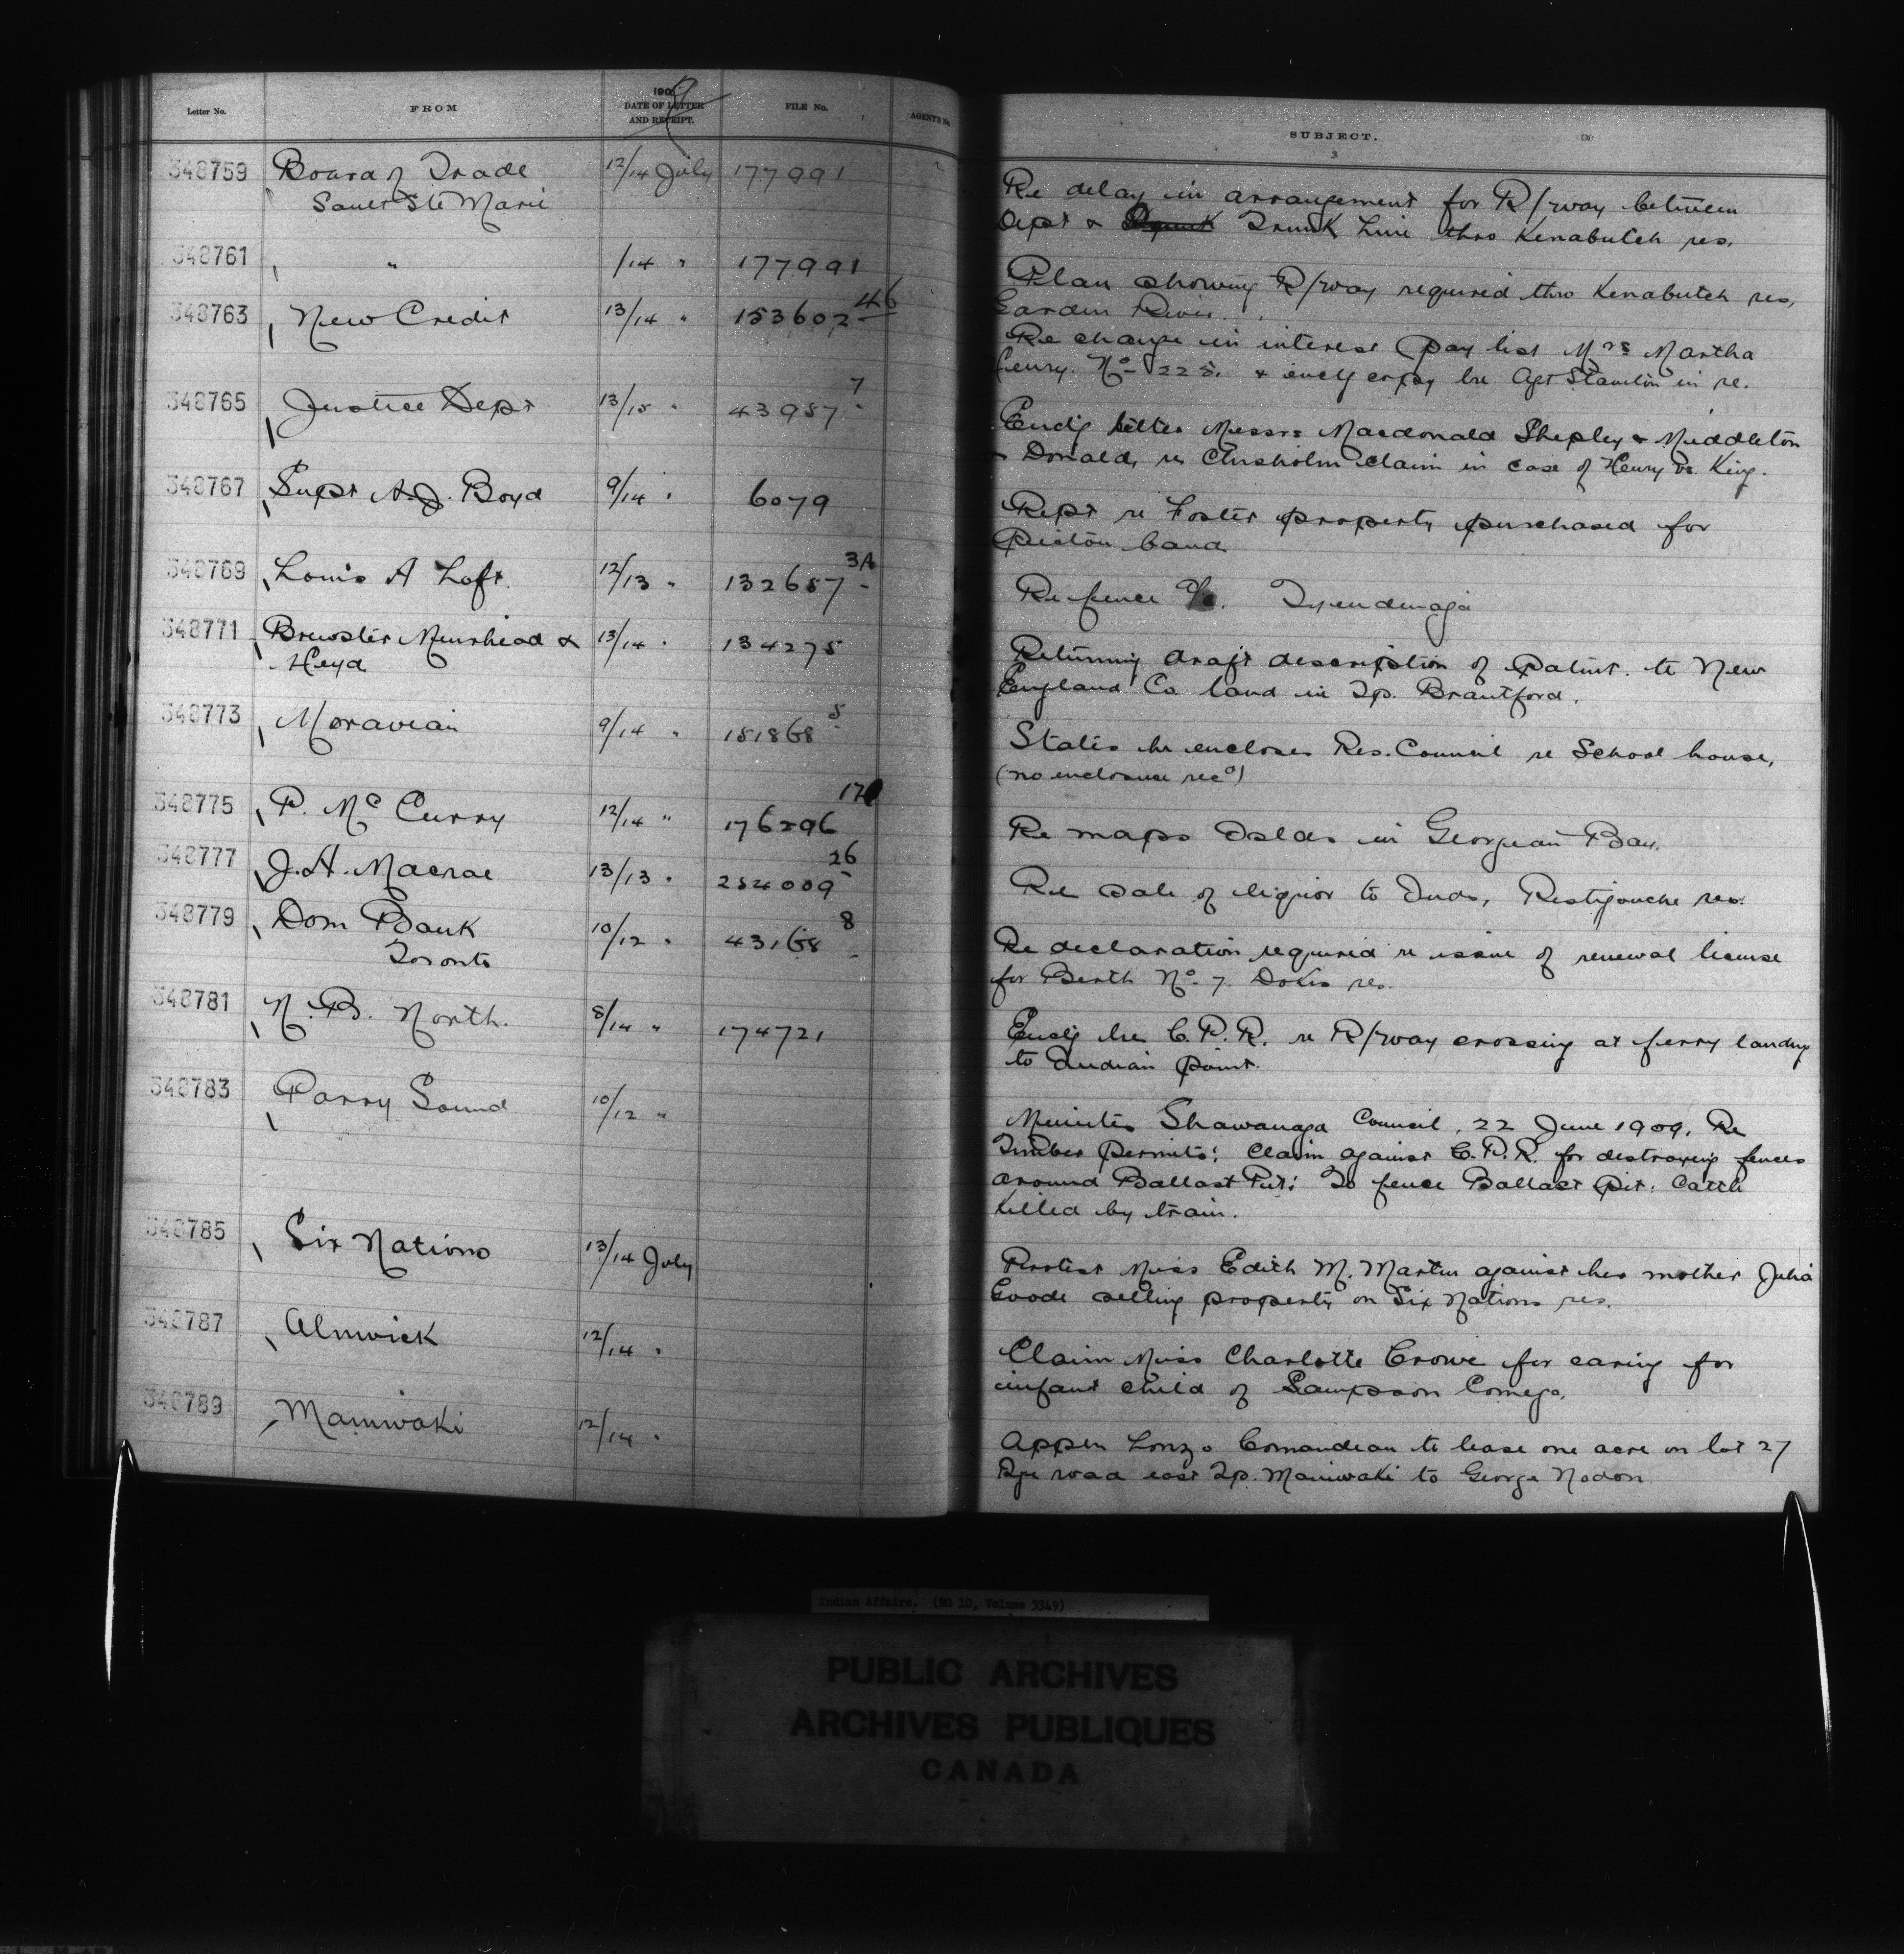 Letter No. FROM 190 DATE OF LETTER AND RECEIPT. FILE No. AGENT'S No. SUBJECT.
3
348759 Board of Trade 12/14 July 177991 Re delay in arrangement for R/way between
Sault Ste Marie Dept & Trunk Line thro Kenabutch res.
348761 " /14 " 177991 Plan showing R/way required thro Kenabutch res,
Garden River.
348763 New Credit 13/14 " 153602 46 Re change in interest pay list Mrs Martha
Henry. No 225. & encl copy lre Agt in re.
348765 Justice Dept 13/15 " 43957 7 Encl'g letter Messrs Macdonald Shepley & Middleton
& Donald, re Chisholm claim in case of Henry vs. King.
348767 Supt A.J. Boyd 9/14 " 6079 Rept re Foster property purchased for
Picton band
348769 Louis A Loft. 12/13 " 132657 3A Re fence Tyendenaga
348771 Brewster Muirhead & 13/14 " 134275 Returning draft description of Patent. to New
Heyd England Co land in Tp. Brantford.
348773 Moravian 9/14 " 151868 5 States he encloses Res. Council re School house,
(no enclosure recd)
348775 P. Mc Curry 12/14 " 176296 17 Re maps Islds in Georgian Bay.
348777 J.A. Macrae 13/13 " 254009 26 Re sale of liquor to Inds, Restigouche res.
348779 Dom Bank 10/12 " 43168 8 Re declaration required re issue of renewal license
Toronto for Berth No. 7. Dokis res.
348781 N.B. North. 8/14 " 174721 Encl'g lre C.P.R. re R/way crossing at ferry landing
to Indian Point.
348783 Parry Sound 10/12 " Minutes Shawanaga Council, 22 June 1909. Re
Timber permits: Claim against C.P.R. for destroying fences
around Ballast Pit: To fence Ballast Pit: Cattle
killed by train.
348785 Six Nations 13/14 July Protest Miss Edith M. Martin against her mother Julia
Goode selling property on Six Nations res.
348787 Alnwick 12/14 " Claim Miss Charlotte Crowe for caring for
infant child of Sampson Comego.
348789 Maniwaki 12/14 " Appln Lonzo Comandeau to lease one acre on lot 27
Rge road east Tp. Maniwaki to George Nodon.
Indian Affairs. (RG 10, Volume 3349)
PUBLIC ARCHIVES
ARCHIVES PUBLIQUES
CANADA